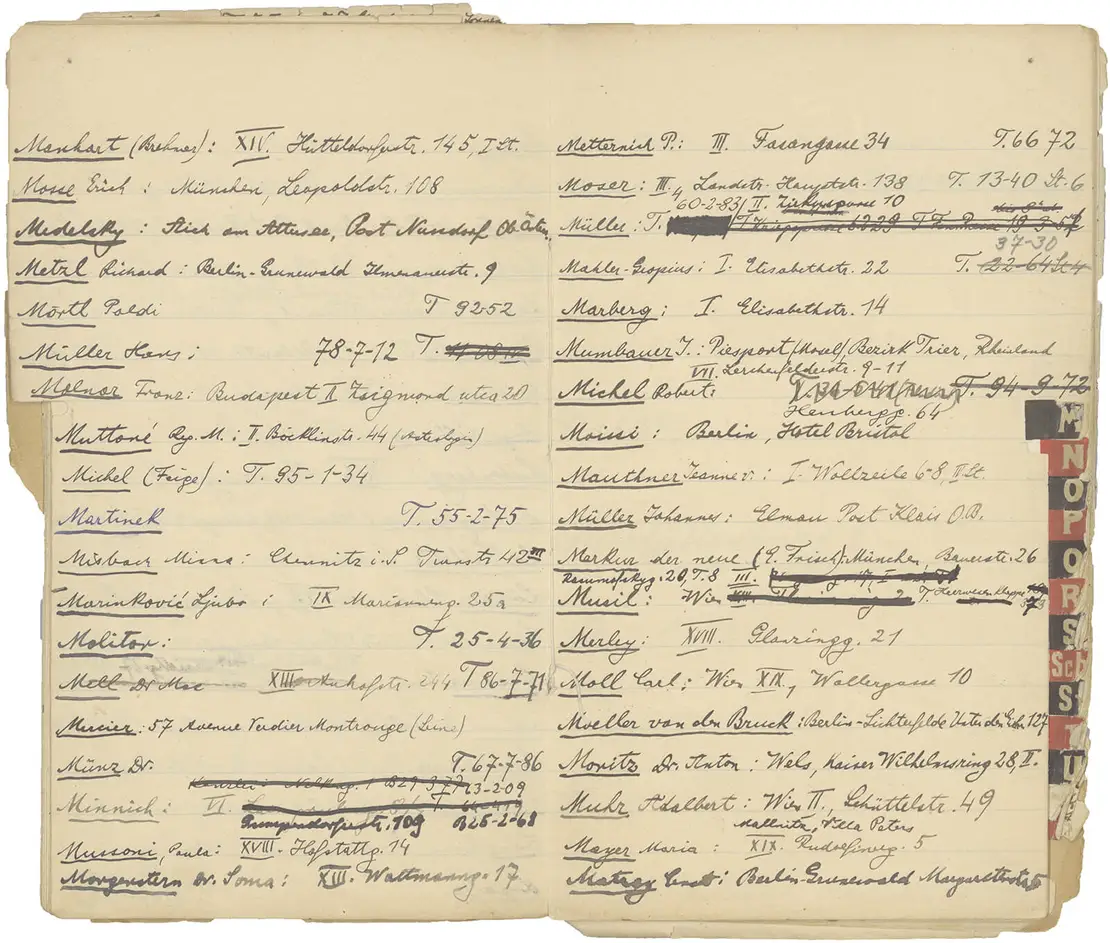 Manhart (Brehner): XIV. Hütteldorferstr. 145, I St.
Mosse Erich: München, Leopoldstr. 108
Medelsky: am Attersee, Post Nussdorf
Metzl Richard: Berlin-Grunewald Ilmenauerstr. 9
Mörtl Poldi T 92-52
Müller Hans: 78-7-12 T.
Molnar Franz: Budapest II Zsigmond utca 20
Muttoné Reg. M.: II. Böcklinstr. 44 (Astrologin)
Michel (Feige): T. 95-1-34
Martinek T. 55-2-75
Misbach Minna: Chemnitz i. S. 42 III
Marinković Ljubo: IX 25a
Molitor: T. 25-4-36
Mell Dr Max XIII Auhofstr. 244 T 86-7-71
Mercier: 57 Avenue Verdier Montrouge (Seine)
Münz Dr. T. 67-7-86
63-2-09
Minnich: VI.
Gumpendorferstr. 109 B25-2-68
Mussoni, Paula: XVIII. Hofstattg. 14
Morgenstern Dr. Soma: XIII. Wattmanng. 17
Metternich P.: III. Fasangasse 34 T. 66 72
Moser: III, 4 Landstr. Hauptstr. 138 T. 13-40 St. 6
60-2-83/ II. Zirkusgasse 10
Müller: T.
37-30
Mahler-Gropius: I. Elisabethstr. 22 T. 22-64 St 4
Marberg: I. Elisabethstr. 14
Mumbauer J.: Piesport (Mosel) Bezirk Trier, Rheinland
VII. Lerchenfelderstr. 9-11
Michel Robert: T. 94-9-72
64
Moissi: Berlin, Hotel Bristol
Mauthner Jeanne v.: I. Wollzeile 6-8, II St.
Müller Johannes: Elmau Post Klais O.B.
Merkur der neue (E. Frisch): München, Bauerstr. 26
Rasumofskyg. 20, T. 8 III.
Musil: Wien
Merley: XVIII. Glanzingg. 21
Moll Carl: Wien XIX, Wollergasse 10
Moeller van den Bruck: Berlin-Lichterfelde Unter den Eichen 127
Moritz Dr. Anton: Wels, Kaiser Wilhelmsring 28, II.
Muhr Adalbert: Wien II, Schüttelstr. 49
Mallnitz, Villa Peters
Mayer Maria: XIX. Rudolfinerg. 5
Matray Ernst: Berlin-Grunewald Margaretenstr. 5
M
N
O
P
Q
R
S
Sch
St
T
U